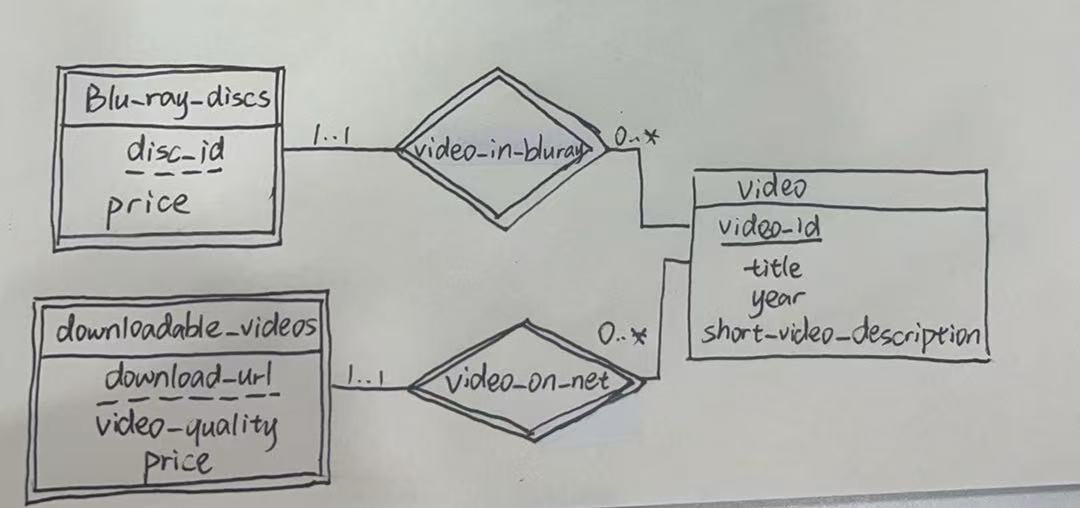 Blu-ray-discs
disc_id
price
1..1
video_in_bluray
0..*
video
video_id
title
year
short_video_description
downloadable_videos
download_url
video_quality
price
1..1
video_on_net
0..*